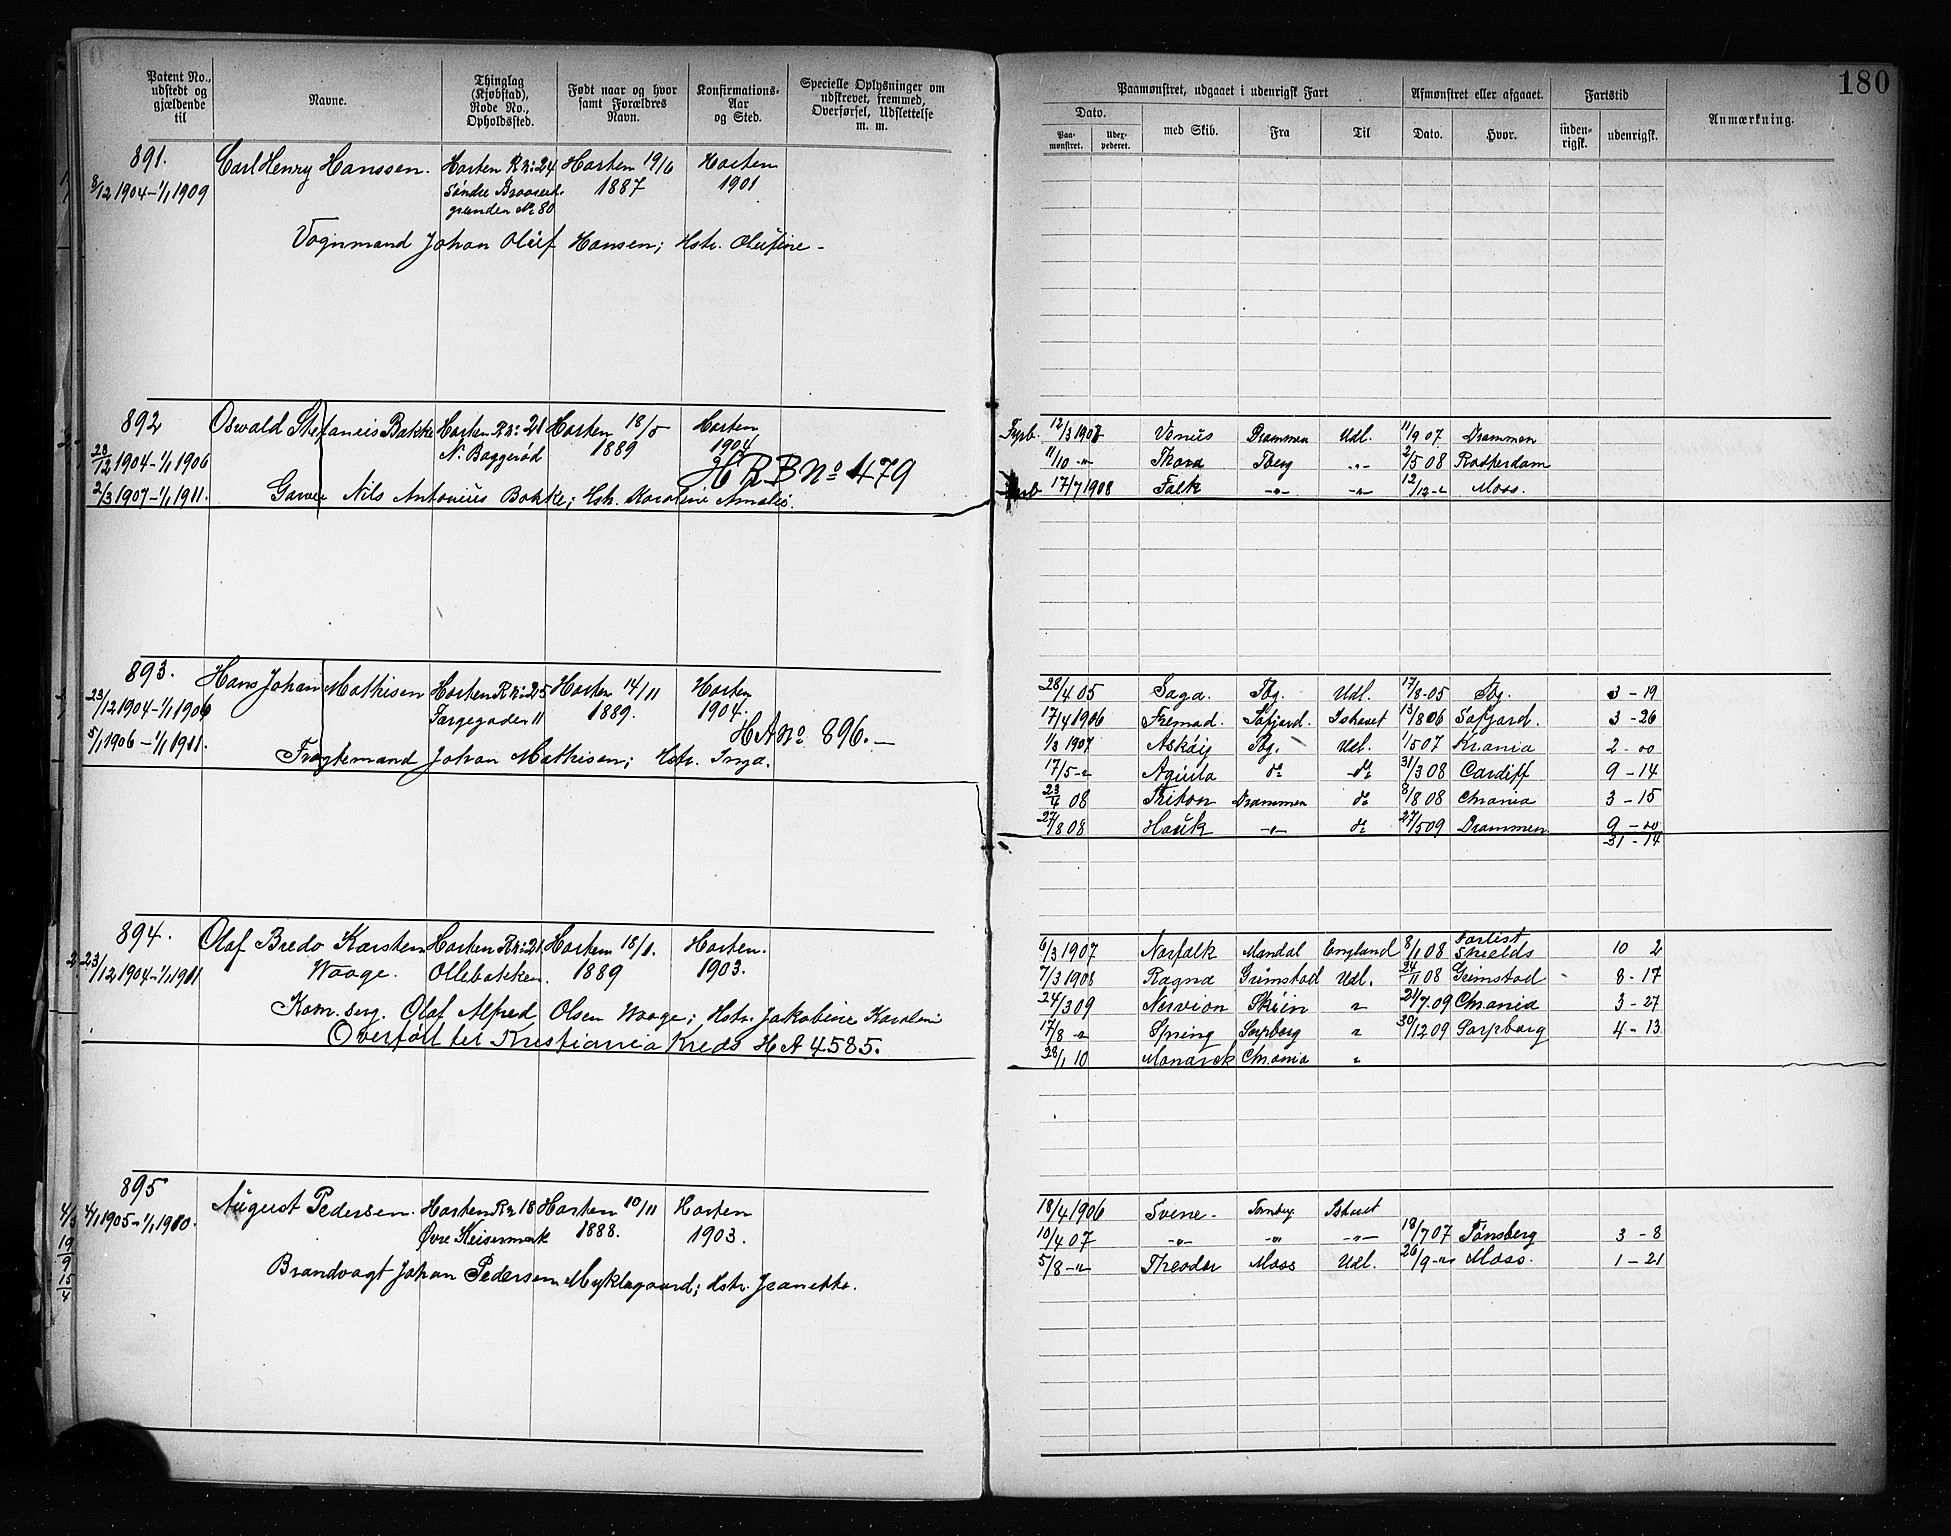 180
Patent No., udstedt og gjældende til
Navne.
Thinglag (Kjøbstad), Rode No., Opholdssted.
Født naar og hvor samt Forældres Navn.
Konfirmations- Aar og Sted.
Specielle Oplysninger om udskrevet, fremmed, Overførsel, Udslettelse m. m.
Paamønstret, udgaaet i udenrigsk Fart
Afmønstret eller afgaaet.
Fartstid
Anmærkning.
Dato.
Paa- mønstret.
Udex- pederet.
med Skib.
Fra
Til
Dato.
Hvor.
inden- rigsk.
udenrigsk.
891.
Carl Henry Hanssen. Horten R N: 24 Horten 19/6 Horten
8/12 1904-1/1 1909 Søndre Braarud- 1887 1901
grunden № 80
Vognmand Johan Oluf Hansen; Hstr. Olufine -
892 Oswald Stefanius Bakke Horten R N: 21 Horten 18/5 Horten
23/12 1904-1/1 1906 N. Baggerød 1889 1904
H R B No 479
2/3 1907-1/1 1911. Garver Nils Antonius Bakke; Hstr. Karoline Amalie.
12/3 1907 Venus Drammen Udl. 11/9 07 Drammen
11/10 -"- Thora Tberg -"- 2/5 08 Rotterdam
17/7 1908 Falk -"- -"- 12/12 -"- Moss.
893. Hans Johan Mathisen Horten R N: 25 Horten 14/11 Horten
23/12 1904-1/1 1906 Fargegaden 11 1889. 1904.
5/1 1906-1/1 1911. H A No 896. -
Fragtemand Johan Mathisen; Hstr. Inga.
28/4 05 Saga. Tbg. Udl. 17/8-05 Tbg. 3-19
17/4 1906 Fremad. Søfjord. Ishavet 13/8 06 Søfjord. 3-26
1/3 1907 Askøig Tbg. Udl. 1/5 07 Krania 2-00
17/5 -"- Aquila do do 31/3 08 Cardiff 9-14
23/4 08 Triton Drammen do 8/8 08 Chrania 3-15
27/8 08 Hauk -"- do 27/5 09 Drammen. 9-00
31-14
894. Olaf Bredo Karsten Horten R N: 21. Horten 18/1. Horten.
23/12 1904-1/1 1911 Waage. Ollebakken. 1889 1903.
Korn. serg. Olaf Alfred Olsen Waage; Hstr. Jakobine Karoline
Overført til Kristiania Kreds H A 4585.
6/3 1907 Norfalk Mandal England 8/1 08 Shields 10 2
7/3 1908 Ragna Grimstad Udl. 24/11 08 Grimstad 8-17
24/3 09 Nervion Skien " 21/7 09 Chrania 3-27
17/8 -"- Spring Sarpborg " 30/12 09 Sarpborg 4-13
28/1 10 Monarck Chrania "
895
August Pedersen. Horten R N 18 Horten 10/11 Horten
4/1 1905-1/1 1910. Øvre Keisermark 1888. 1903.
Brandvagt Johan Pedersen Myklegaard; Hstr. Jeanette.
18/4 1906 Svene. Tønsbg Ishavet
10/4 07 -"- -"- -"- 18/7 07 Tønsberg 3-8
5/8 -"- Theodor Moss Udl. 26/9 -"- Moss. 1-21